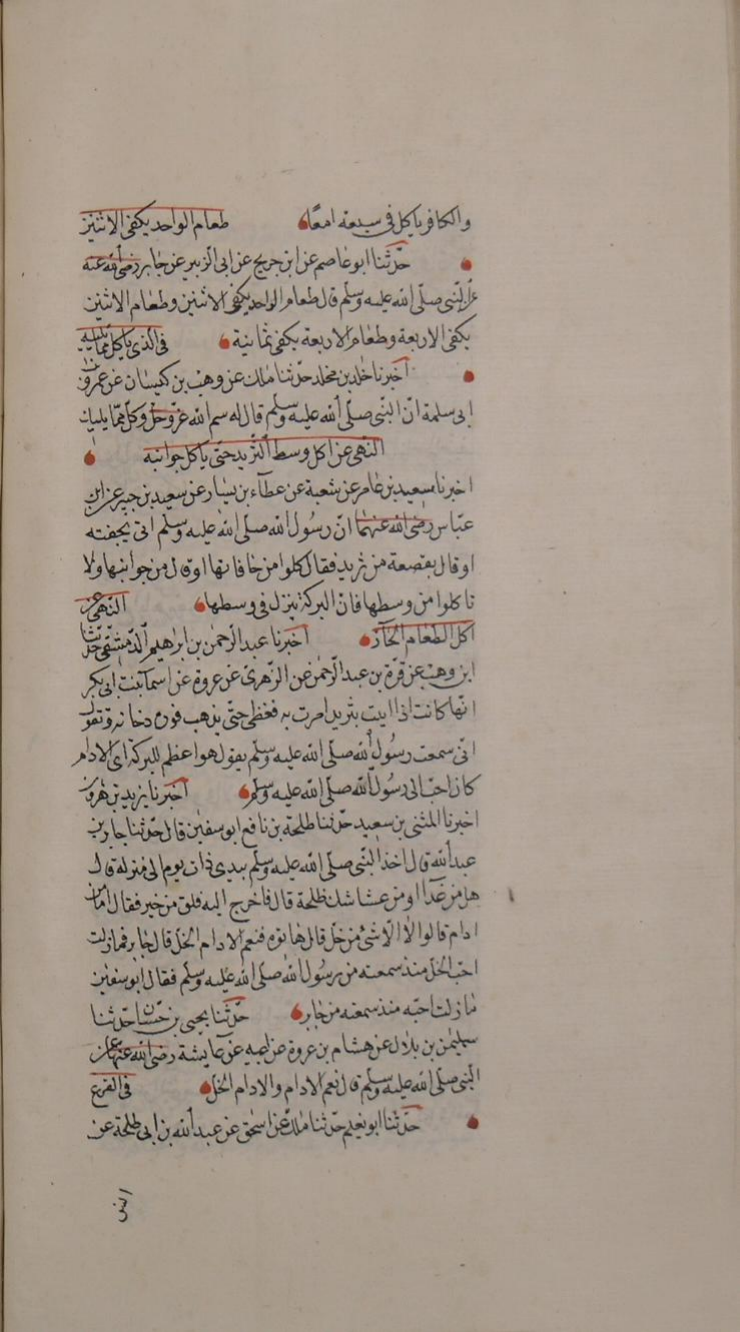 والكافر ياكل في سبعة امعا طعام الواحد يكفى الاثنين
حدثنا ابو عاصم عن ابن جريج عن ابى الزبير عن جابر رضى الله عنه
عن النبى صلى الله عليه وسلم قال طعام الواحد يكفى الاثنين وطعام الاثنين
يكفى الاربعة وطعام الاربعة يكفى ثمانية في الذى ياكل مما يليه
اخبرنا خلد بن مخلد حدثنا ملك عن وهب بن كيسان عن عمر بن
ابى سلمة ان النبى صلى الله عليه وسلم قال له سم الله عز وجل وكل مما يليك
النهى عن اكل وسط الثريد حتى ياكل جوانبه
اخبرنا سعيد بن عامر عن شعبة عن عطاء بن يسار عن سعيد بن جبير عن ابن
عباس رضى الله عنهما ان رسول الله صلى الله عليه وسلم اتى بجفنة
او قال بقصعة من ثريد فقال كلوا من حافاتها او قال من جوانبها ولا
تاكلوا من وسطها فان البركة ينزل في وسطها النهى عن
اكل الطعام الحار اخبرنا عبد الرحمن بن ابراهيم الدمشقى حدثنا
ابن وهب عن قرة بن عبد الرحمن عن الزهرى عن عروة عن اسما بنت ابى بكر
انها كانت اذا اتيت بثريد امرت به فغطى حتى يذهب فوره دخانه وتقول
انى سمعت رسول الله صلى الله عليه وسلم يقول هو اعظم للبركة اى الادام
كان احب الى رسول الله صلى الله عليه وسلم اخبرنا يزيد بن هرون
اخبرنا المثنى بن سعيد حدثنا طلحة بن نافع ابو سفين قال حدثنا جابر بن
عبد الله قال اخذ النبى صلى الله عليه وسلم بيدى ذات يوم الى منزله قال
هل من غدا او من عشا شك طلحة قال فاخرج اليه فلق من خبز فقال امامن
ادام قالوا لا الا شئ من خل قال هاتوه فنعم الادام الخل قال جابر فمازلت
احب الخل منذ سمعته من رسول الله صلى الله عليه وسلم فقال ابو سفين
مازلت احبه منذ سمعته من جابر حدثنا يحيى بن حسان حدثنا
سليمن بن بلال عن هشام بن عروة عن ابيه عن عايشة رضى الله عنها عن
النبى صلى الله عليه وسلم قال نعم الادام والادام الخل في القرع
حدثنا ابو نعيم حدثنا ملك عن اسحق عن عبد الله بن ابى طلحة عن
انس